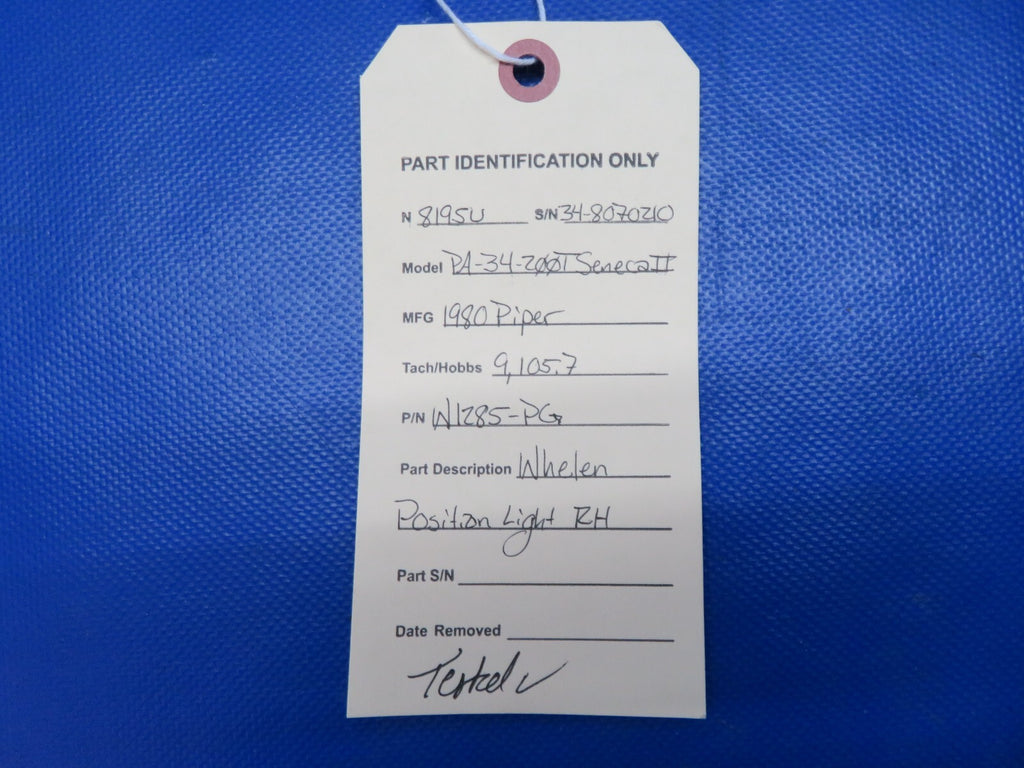 PART IDENTIFICATION ONLY
N 8195U S/N 34-8070210
Model PA-34-200T Seneca II
MFG 1980 Piper
Tach/Hobbs 9,105.7
P/N W1285-PG
Part Description Whelen
Position Light RH
Part S/N
Date Removed
Tested ✓